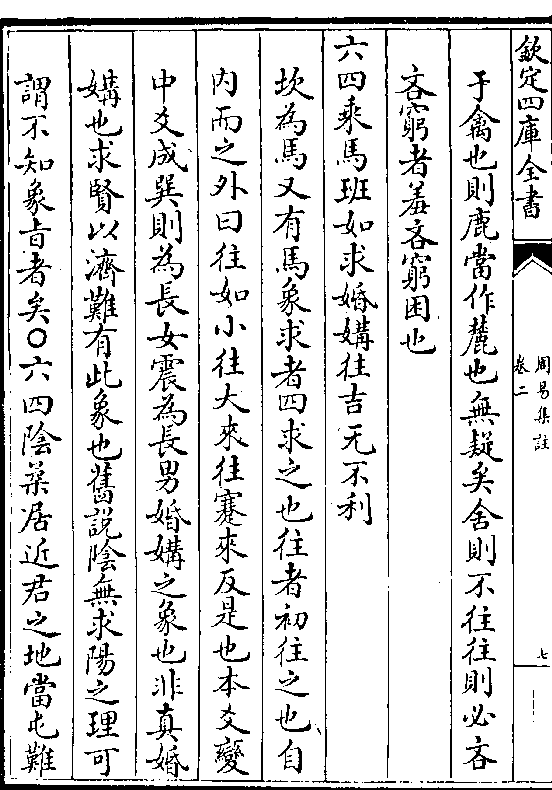 欽定四庫全書
周易集註
卷二
七
于禽也則鹿當作麓也無疑矣舍則不往往則必吝
吝窮者羞吝窮困也
六四乘馬班如求婚媾往吉无不利
坎為馬又有馬象求者四求之也往者初往之也自
內而之外曰往如小往大來往蹇來反是也本爻變
中爻成巽則為長女震為長男婚媾之象也非真婚
媾也求賢以濟難有此象也舊說陰無求陽之理可
謂不知象旨者矣○六四陰柔居近君之地當屯難